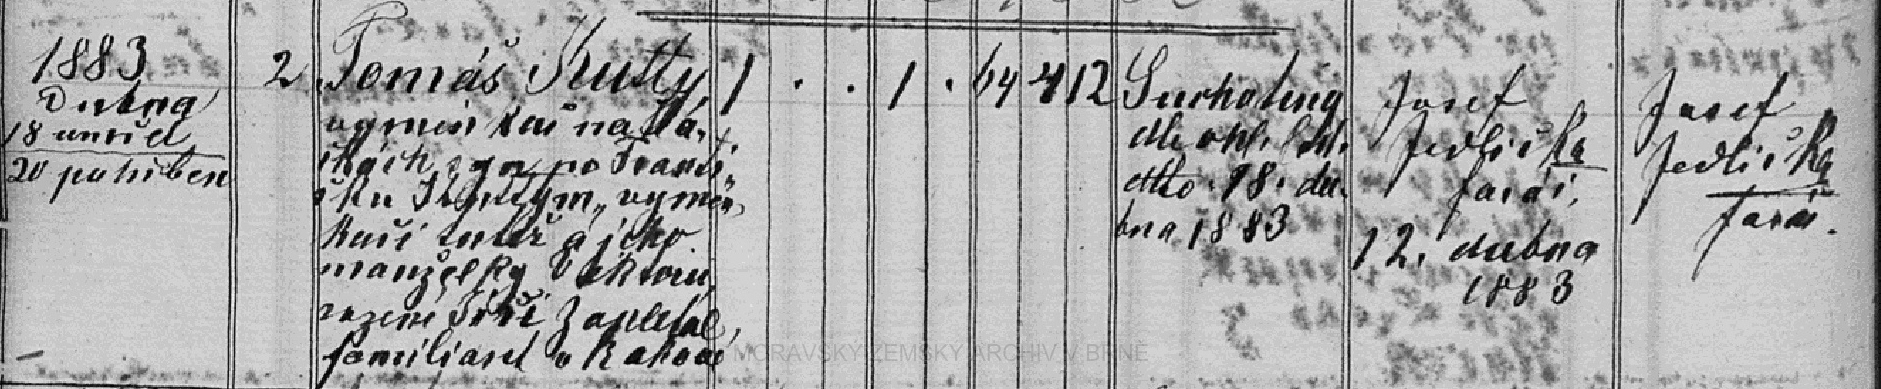 1883
Dubna
18 umřel
20 pohřben
2
Tomáš Kutty,
výměnkář na
po Franti-
šku výměn-
káři tutéž a jeho
manželky Viktorie,
rozené Jiří Zapletal,
familianta v Rakové
1 . . 1 . 64 4 12
Suchotiny
dle ohl. list.
dto. 18. du-
bna 1883
Josef
Jedlička
farář,
12. dubna
1883
Josef
Jedlička
farář.
MORAVSKÝ ZEMSKÝ ARCHIV V BRNĚ